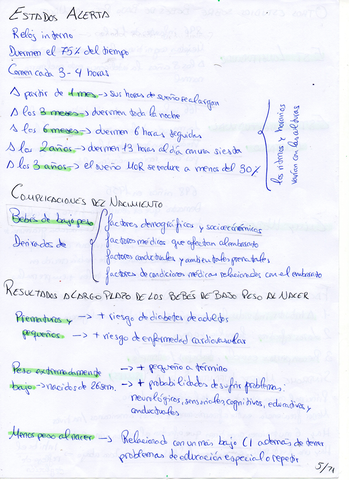 ESTADOS ALERTA
Reloj interno
Duermen el 75% del tiempo
Comen cada 3-4 horas
A partir de 1 mes -> sus horas de sueño se alargan
A los 3 meses -> duermen toda la noche
A los 6 meses -> duermen 6 horas seguidas
A los 2 años -> duermen 13 horas al día con una siesta
A los 3 años -> el sueño MOR se reduce a menos del 30%
los ritmos y horarios
varían con las culturas
COMPLICACIONES DEL NACIMIENTO
Bebés de bajo peso
Derivados de
factores demográficos y socioeconómicos
factores médicos que afectan al embarazo
factores conductuales y ambientales prenatales
factores de condiciones médicas relacionadas con el embarazo
RESULTADOS A LARGO PLAZO DE LOS BEBÉS DE BAJO PESO AL NACER
Prematuros y -> + riesgo de diabetes de adultos
pequeños -> + riesgo de enfermedad cardiovascular
Peso extremadamente -> + pequeño a término
bajo -> nacidos de 26sem. -> + probabilidades de sufrir problemas:
neurológicos, sensoriales, cognitivos, educativos y
conductuales
Menos peso al nacer -> Relacionado con un más bajo CI además de tener
problemas de educación especial o repetir
5/71